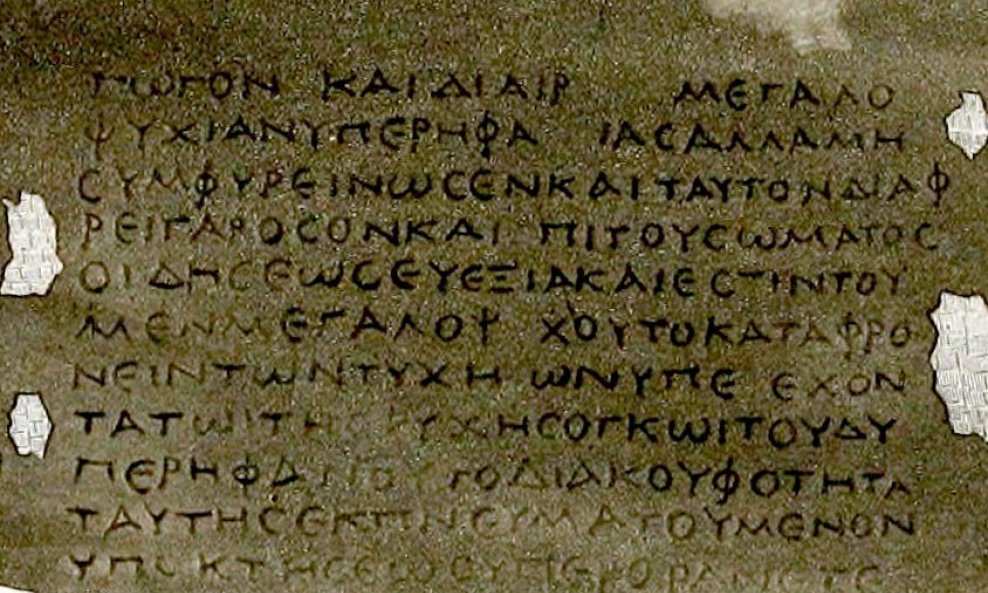 ΚΑΙ ΔΙΑΙΡ ΜΕΓΑΛΟ
ΨΥΧΙΑΝΥΠΕΡΗΦΑ ΙΑϹΑΛΛΑΜΗ
ϹΥΜΦΥΡΕΙΝωϹΕΝΚΑΙΤΑΥΤΟΝΔΙΑΦ
ΡΕΙΓΑΡΟϹΟΝΚΑΙ ΠΙΤΟΥϹωΜΑΤΟϹ
ΟΙΔΗϹΕωϹΕΥΕΞΙΑΚΑΙΕϹΤΙΝΤΟΥ
ΜΕΝΜΕΓΑΛΟΨ ΧΟΥΤΟΚΑΤΑΦΡΟ
ΝΕΙΝΤωΝΤΥΧΗ ωΝΥΠΕ ΕΧΟΝ
ΤΑΤωΙΤΗϹΨΥΧΗϹΟΓΚωΙΤΟΥΔΥ
ΠΕΡΗΦΑΝΟΥΤΟΔΙΑΚΟΥΦΟΤΗΤΑ
ΤΑΥΤΗϹΕΚΠΝΕΥΜΑΤΟΥΜΕΝΟΝ
ΥΠΟΚΤΗϹΕωϹΥΠΕΡΟΡΑΝ